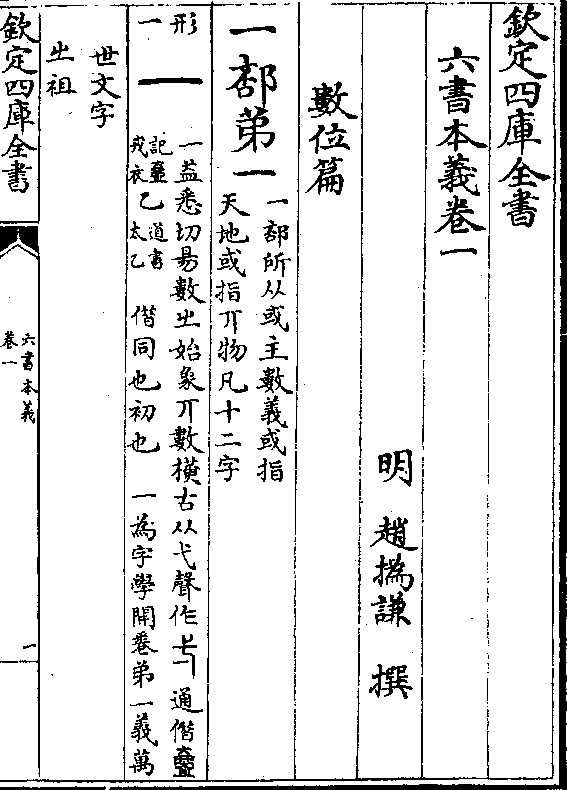 欽定四庫全書
六書本義卷一
明 趙撝謙 撰
數位篇
一部弟一
一部所从或主數義或指
天地或指丌物凡十二字
形
一
一
一益悉切昜數㞢始象丌數橫古从弋聲作弌通偕壹
記壹戎衣乙道書太乙 偕同也初也 一為字學開卷弟一義萬
世文字
㞢祖
欽定四庫全書
六書本義
卷一
一